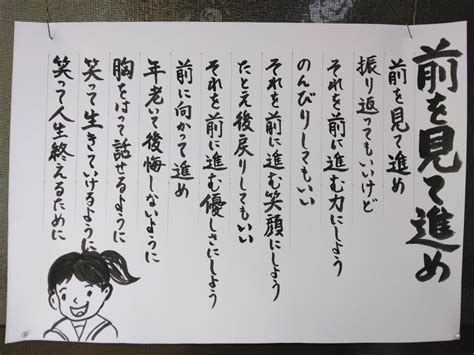 前を見て進め
前を見て進め
振り返ってもいいけど
それを前に進む力にしよう
のんびりしてもいい
それを前に進む笑顔にしよう
たとえ後戻りしてもいい
それを前に進む優しさにしよう
前に向かって進め
年老いて後悔しないように
胸をはって話せるように
笑って生きていけるように
笑って人生終えるために